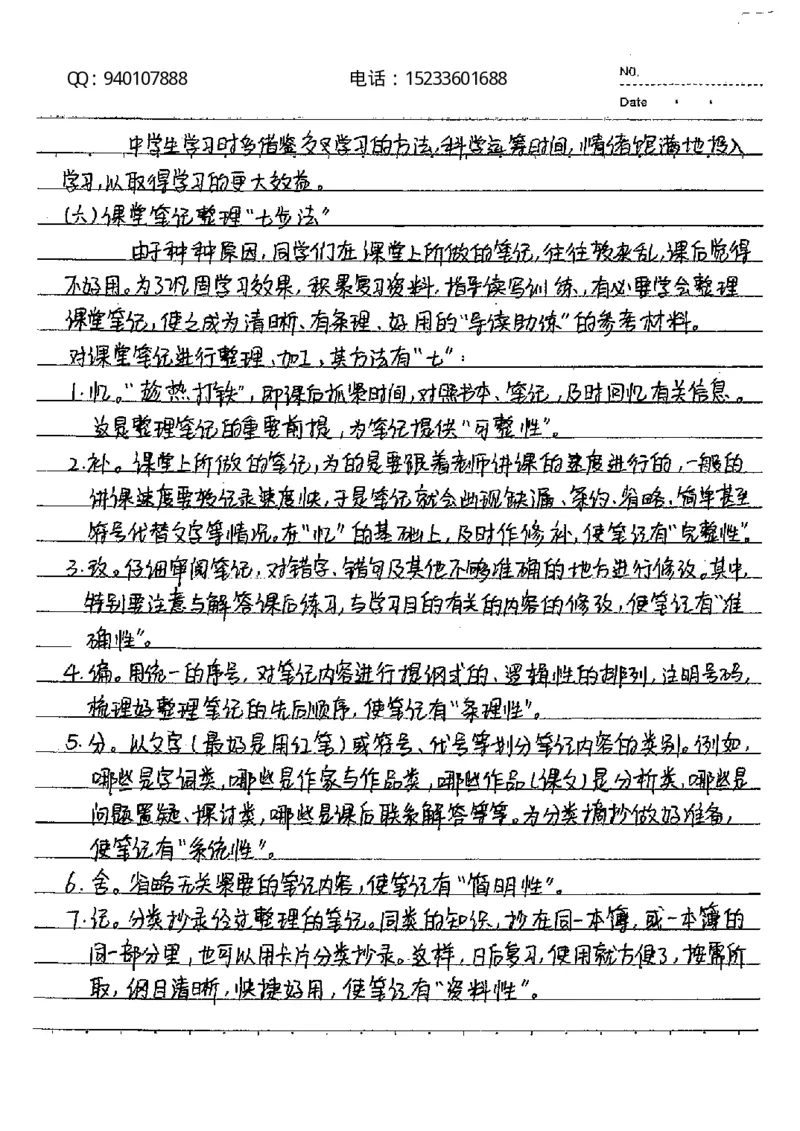 QQ：940107888 电话：15233601688 No.
Date
中学生学习时多借鉴交叉学习的方法,科学运筹时间,情绪饱满地投入
学习,以取得学习的更大效益。
(六)课堂笔记整理“七步法”
由于种种原因,同学们在课堂上所做的笔记,往往较杂乱,课后觉得
不好用。为了巩固学习效果,积累复习资料,指导读写训练,有必要学会整理
课堂笔记,使之成为清晰、有条理、好用的“导读助练”的参考材料。
对课堂笔记进行整理、加工,其方法有“七”:
1.忆。“趁热打铁”,即课后抓紧时间,对照书本、笔记,及时回忆有关信息。
这是整理笔记的重要前提,为笔记提供“可整性”。
2.补。课堂上所做的笔记,为的是要跟着老师讲课的速度进行的,一般的
讲课速度要较记录速度快,于是笔记就会出现缺漏、条约、省略、简单甚至
符号代替文字等情况。在“忆”的基础上,及时作修补,使笔记有“完整性”。
3.改。仔细审阅笔记,对错字、错句及其他不够准确的地方进行修改。其中,
特别要注意与解答课后练习,与学习目的有关的内容的修改,使笔记有“准
确性”。
4.编。用统一的序号,对笔记内容进行提纲式的、逻辑性的排列,注明号码,
梳理好整理笔记的先后顺序,使笔记有“条理性”。
5.分。以文字(最好是用红笔)或符号、代号等划分笔记内容的类别。例如,
哪些是字词类,哪些是作家与作品类,哪些作品(课文)是分析类,哪些是
问题置疑、探讨类,哪些是课后联系解答等等。为分类摘抄做好准备,
使笔记有“系统性”。
6.舍。省略无关紧要的笔记内容,使笔记有“简明性”。
7.记。分类抄录经过整理的笔记。同类的知识,抄在同一本簿,或一本簿的
同一部分里,也可以用卡片分类抄录。这样,日后复习,使用就方便了,按需所
取,纲目清晰,快捷好用,使笔记有“资料性”。